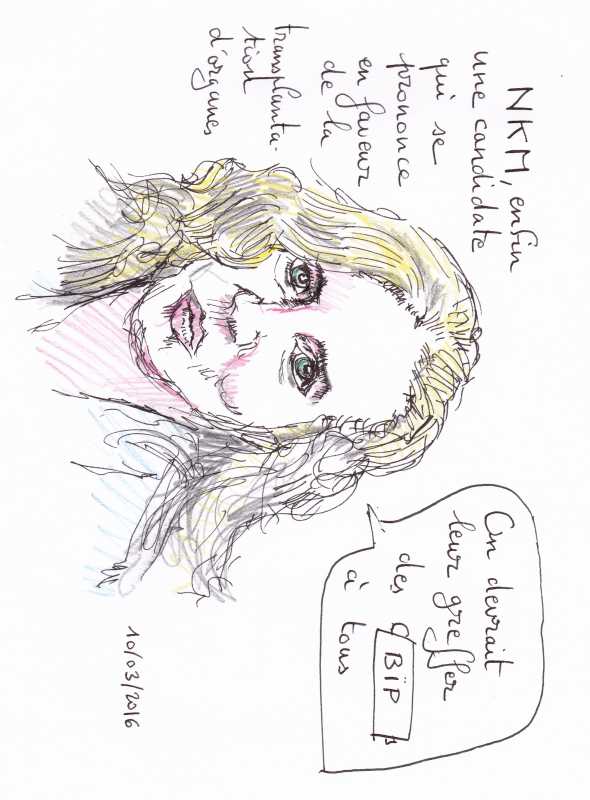 NKM, enfin
une candidate
qui se
prononce
en faveur
de la
transplanta-
tion
d'organes
On devrait
leur greffer
des BÏP
à tous
10/03/2016